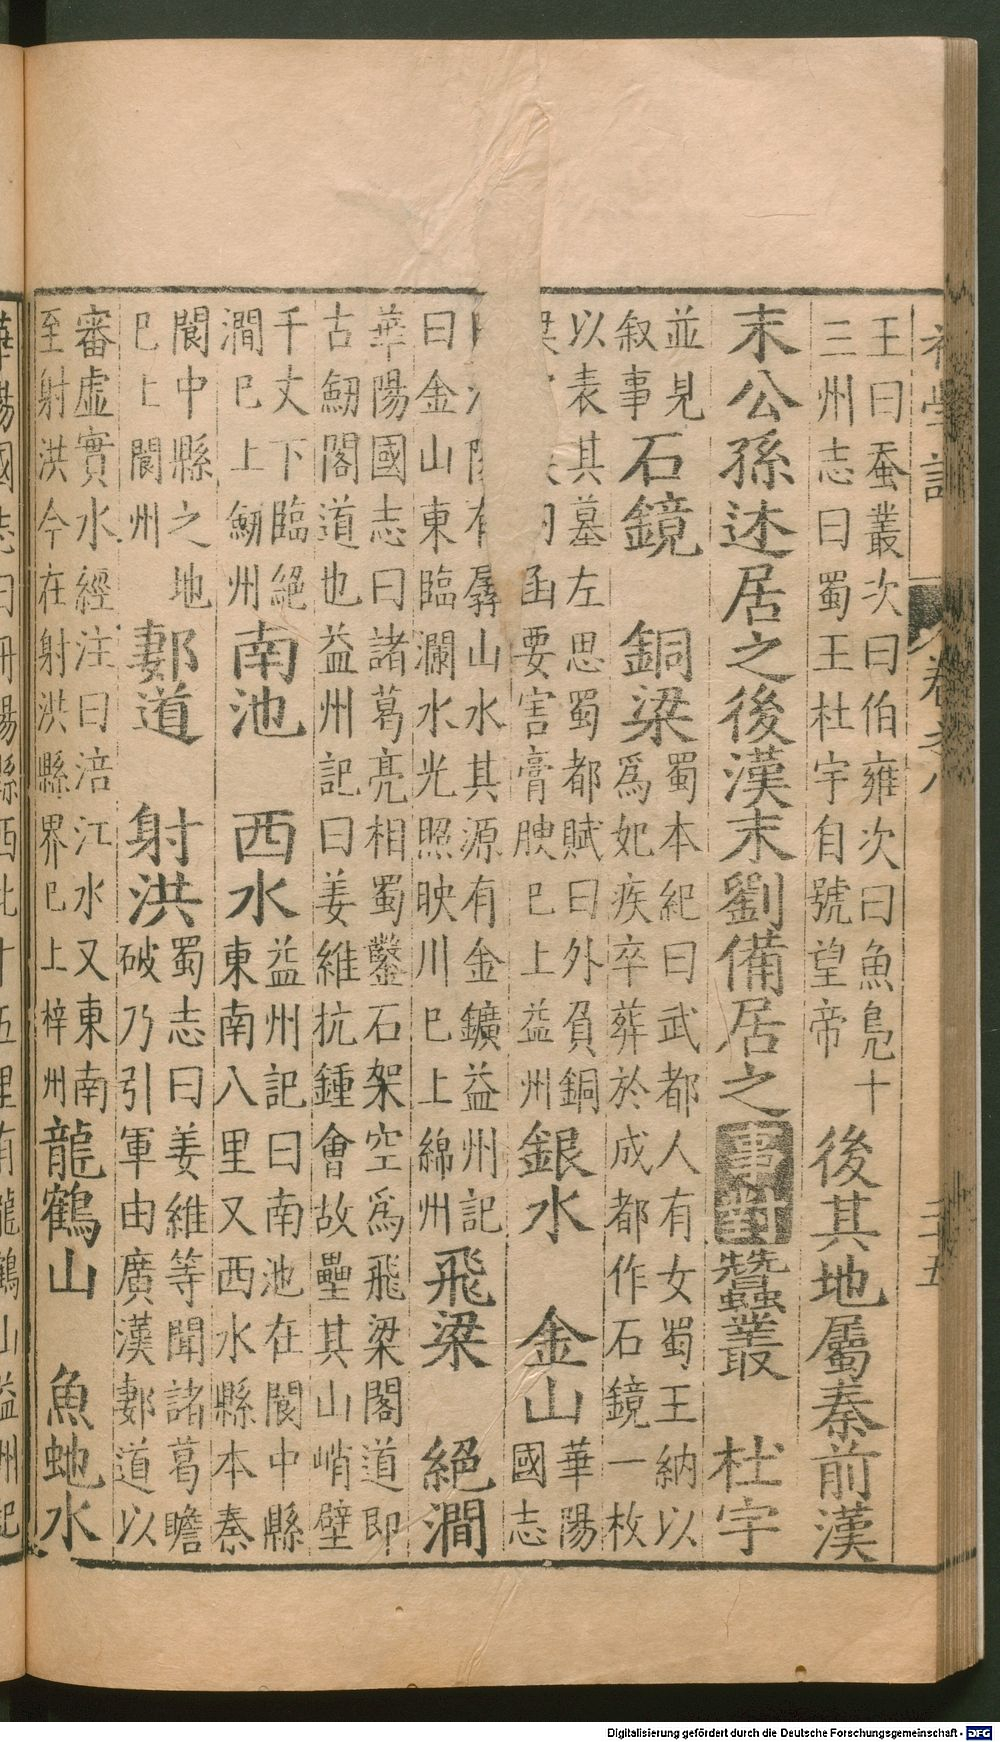 卷之八
王曰蚕叢次曰伯雍次曰魚鳧十
三州志曰蜀王杜宇自號望帝
後其地屬秦前漢
末公孫述居之後漢末劉備居之事對蠶叢 杜宇
並見
叙事
石鏡 銅梁
蜀本紀曰武都人有女蜀王納以
爲妃疾卒葬於成都作石鏡一枚
以表其墓左思蜀都賦曰外負銅
函要害膏腴巳上益州
銀水 金山
華陽
國志
山水其源有金鑛益州記
曰金山東臨瀾水光照映川巳上綿州
飛梁 絕澗
華陽國志曰諸葛亮相蜀鑿石架空爲飛梁閣道即
古劒閣道也益州記曰姜維抗鍾會故壘其山峭壁
千丈下臨絕
澗巳上劒州
南池 西水
益州記曰南池在閬中縣
東南八里又西水縣本秦
閬中縣之地
巳上閬州
郪道 射洪
蜀志曰姜維等聞諸葛瞻
破乃引軍由廣漢郪道以
審虛實水經注曰涪江水又東南
至射洪今在射洪縣界巳上梓州
龍鶴山 魚虵水
Digitalisierung gefördert durch die Deutsche Forschungsgemeinschaft - DFG